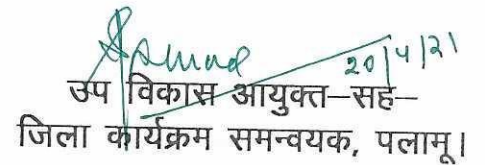 20/4/21
उप विकास आयुक्त–सह–
जिला कार्यक्रम समन्वयक, पलामू।